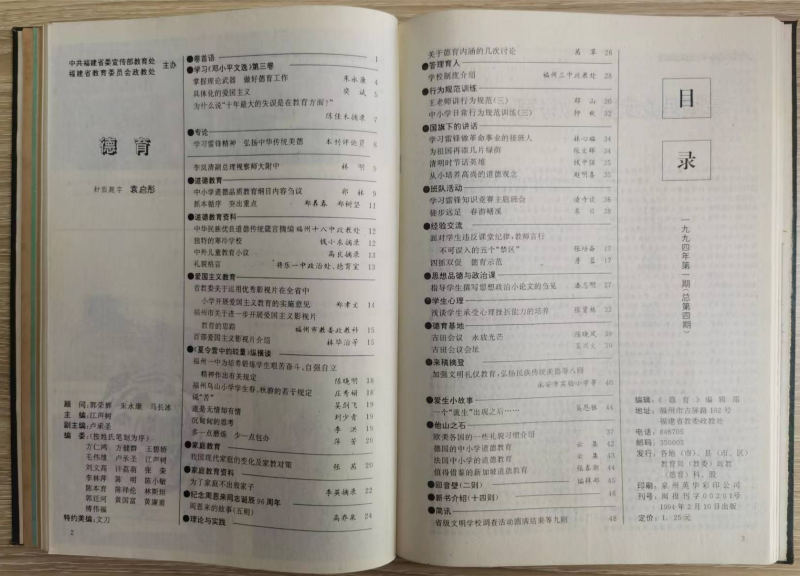 中共福建省委宣传部教育处
福建省教育委员会政教处
主办
德育
封面题字 袁启彤
顾问:郭荣辉 朱永康 马长冰
主编:江声树
副主编:卢秉圣
编委:(按姓氏笔划为序)
方仁鸿 方健群 王碧娇
毛伟雄 卢乐圣 江声树
刘文英 许荔南 张棻
李林萍 陈明 陈小敏
陈本育 陈祥伦 林斯坦
郭廷河 黄国富 黄廉雁
傅伟福
特约美编:文刀
2
●卷首语 1
●学习《邓小平文选》第三卷
掌握理论武器 做好德育工作 朱永康 4
具体化的爱国主义 奕斌 5
为什么说“十年最大的失误是在教育方面?”
陈佳木摘录 7
●专论
学习雷锋精神 弘扬中华传统美德 本刊评论员 8
李岚清副总理视察师大附中 林明 9
●道德教育
中小学道德品质教育纲目内容刍议 郑林 9
抓本顺序 突出重点 郑慕春 郑树坚 11
●道德教育资料
中华民族优良道德传统箴言摘编 福州十八中政教处 12
独特的寒待学校 钱小木摘录 12
中外儿童教育小议 高良摘录 13
礼貌格言 将乐一中政治处、德育室 13
●爱国主义教育
省教委关于运用优秀影片在全省中
小学开展爱国主义教育的实施意见 郑孝文 14
福州市关于进一步开展爱国主义影片
教育的思路 福州市教委政教科 15
百部爱国主义影片介绍 林华治等 15
●《夏令营中的较量》纵横谈
福州一中为培养锻炼学生艰苦奋斗、自强自立
精神作出有关规定 陈晓明 18
福州乌山小学学生春、秋游的若干规定 庄秀娟 18
谈“苦” 吴剑飞 19
道是无情却有情 刘少青 19
沉甸甸的思考 李洪 19
多一点磨砺 少一点包办 萍芳 20
●家庭教育
我国现代家庭的变化及家教对策 张嵩 20
●家庭教育资料
为了家庭不出败家子 李英摘录 22
●纪念周恩来同志诞辰96周年
周恩来的故事(五则) 高乔泉 24
●理论与实践
关于德育内涵的几次讨论 26
●管理育人
学校制度介绍 福州三中政教处 28
●行为规范训练
王老师训行为规范(三) 郑山 26
中小学日常行为规范训练(三) 钟敏 32
●国旗下的讲话
学习雷锋做革命事业的接班人 林心鹏 34
为祖国再添几片绿荫 张文辉 34
清明时节话英雄 34
从小培养高尚的道德观念 赵明喜 35
●班队活动
学习雷锋知识竞赛主题班会 35
徒步远足 春游鳝溪 36
●经验交流
面对学生违反课堂纪律,教师言行
不可误入的五个“禁区” 36
四抓双促 德育示范 37
●思想品德与政治课
指导学生撰写思想政治小论文的刍见 潘志明 37
●学生心理
浅谈学生承受心理挫折能力的培养 38
●德育基地
古田会议 永放光芒 陈晓风 39
古田会议会址 39
●来稿摘登
加强文明礼仪教育,弘扬民族传统美德等八则
永安市实验小学等 40
●爱生小故事
一个“诞生”出现之后…… 44
●他山之石
欧美各国的一些礼貌习惯介绍 44
德国的中小学道德教育 44
法国中小学的道德教育 45
值得借鉴的新加坡道德教育 张春期 46
●回音壁(二则) 编辑部 46
●新书介绍(十四则) 47
●简讯
省级文明学校调查活动圆满结束等九则 48
目录
一九九四年第一期(总第四期)
编辑:《德育》编辑部
地址:福州市古屏路162号
福建省教委政教处
电话:846705
邮码:350003
发行:各地(市)、县(市、区)
教育局(教委)政教
(德育)科、股
印刷:泉州英华彩印公司
刊号:闽报刊字00261号
1994年2月10日出版
定价:1.25元
3